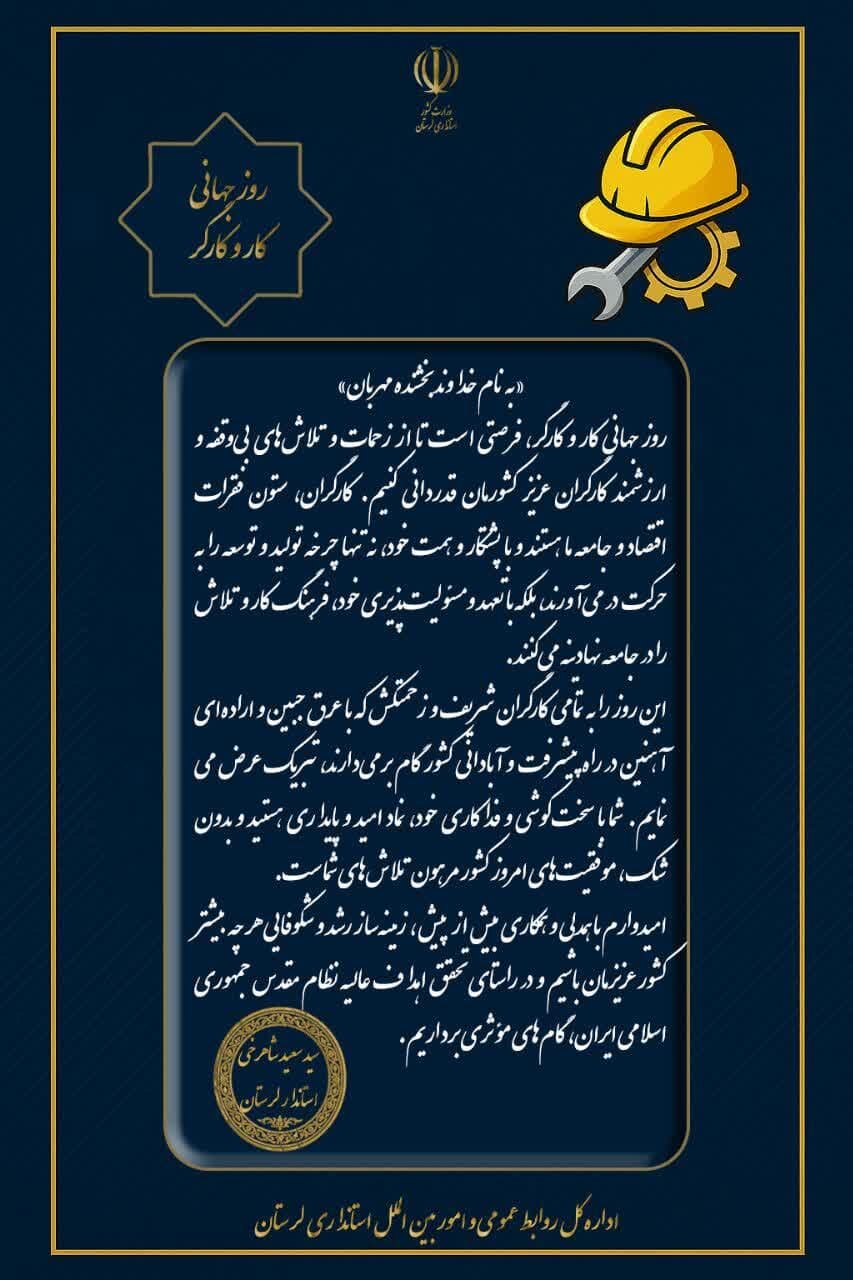 وزارت کشور
استانداری لرستان
روز جهانی
کار و کارگر
«به نام خداوند بخشنده مهربان»
روز جهانی کار و کارگر، فرصتی است تا از زحمات و تلاش‌های بی‌وقفه و
ارزشمند کارگران عزیز کشورمان قدردانی کنیم. کارگران، ستون فقرات
اقتصاد و جامعه ما هستند و با پشتکار و همت خود، نه تنها چرخه تولید و توسعه را به
حرکت در می‌آورند، بلکه با تعهد و مسئولیت‌پذیری خود، فرهنگ کار و تلاش
را در جامعه نهادینه می‌کنند.
این روز را به تمامی کارگران شریف و زحمتکش که با عرق جبین و اراده‌ای
آهنین در راه پیشرفت و آبادانی کشور گام برمی‌دارند، تبریک عرض می
نمایم. شما با سخت‌کوشی و فداکاری خود، نماد امید و پایداری هستید و بدون
شک، موفقیت‌های امروز کشور مرهون تلاش‌های شماست.
امیدوارم با همدلی و همکاری بیش از پیش، زمینه‌ساز رشد و شکوفایی هر چه بیشتر
کشور عزیزمان باشیم و در راستای تحقق اهداف عالیه نظام مقدس جمهوری
اسلامی ایران، گام‌های مؤثری برداریم.
سید سعید شاهرخی
استاندار لرستان
اداره کل روابط عمومی و امور بین الملل استانداری لرستان